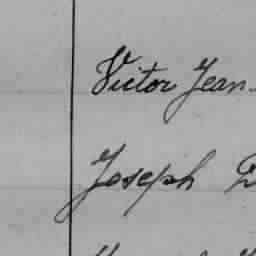 Victor Jean
Joseph